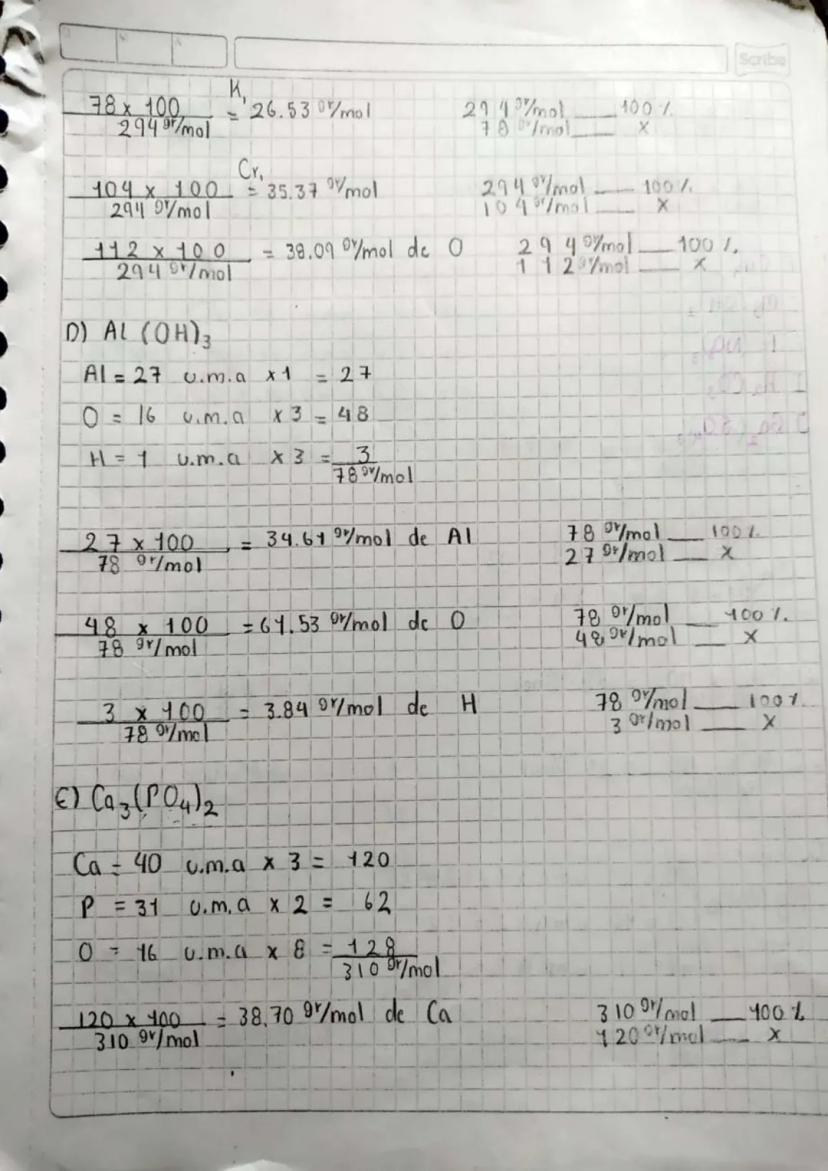 Scribe
K,
78 x 100 / 294 gr/mol = 26.53 gr/mol    294 gr/mol ___ 100 %
78 gr/mol ___ x
Cr,
104 x 100 / 294 gr/mol = 35.37 gr/mol    294 gr/mol ___ 100 %
104 gr/mol ___ x
112 x 100 / 294 gr/mol = 38.09 gr/mol de O    294 gr/mol ___ 100 %.
112 gr/mol ___ x
D) Al (OH)₃
Al = 27 u.m.a x 1 = 27
O = 16 u.m.a x 3 = 48
H = 1 u.m.a x 3 = 3
78 gr/mol
27 x 100 / 78 gr/mol = 34.61 gr/mol de Al    78 gr/mol ___ 100 %
27 gr/mol ___ x
48 x 100 / 78 gr/mol = 61.53 gr/mol de O    78 gr/mol ___ 100 %.
48 gr/mol ___ x
3 x 100 / 78 gr/mol = 3.84 gr/mol de H    78 gr/mol ___ 100 %
3 gr/mol ___ x
E) Ca₃(PO₄)₂
Ca = 40 u.m.a x 3 = 120
P = 31 u.m.a x 2 = 62
O = 16 u.m.a x 8 = 128
310 gr/mol
120 x 100 / 310 gr/mol = 38.70 gr/mol de Ca    310 gr/mol ___ 100 %
120 gr/mol ___ x